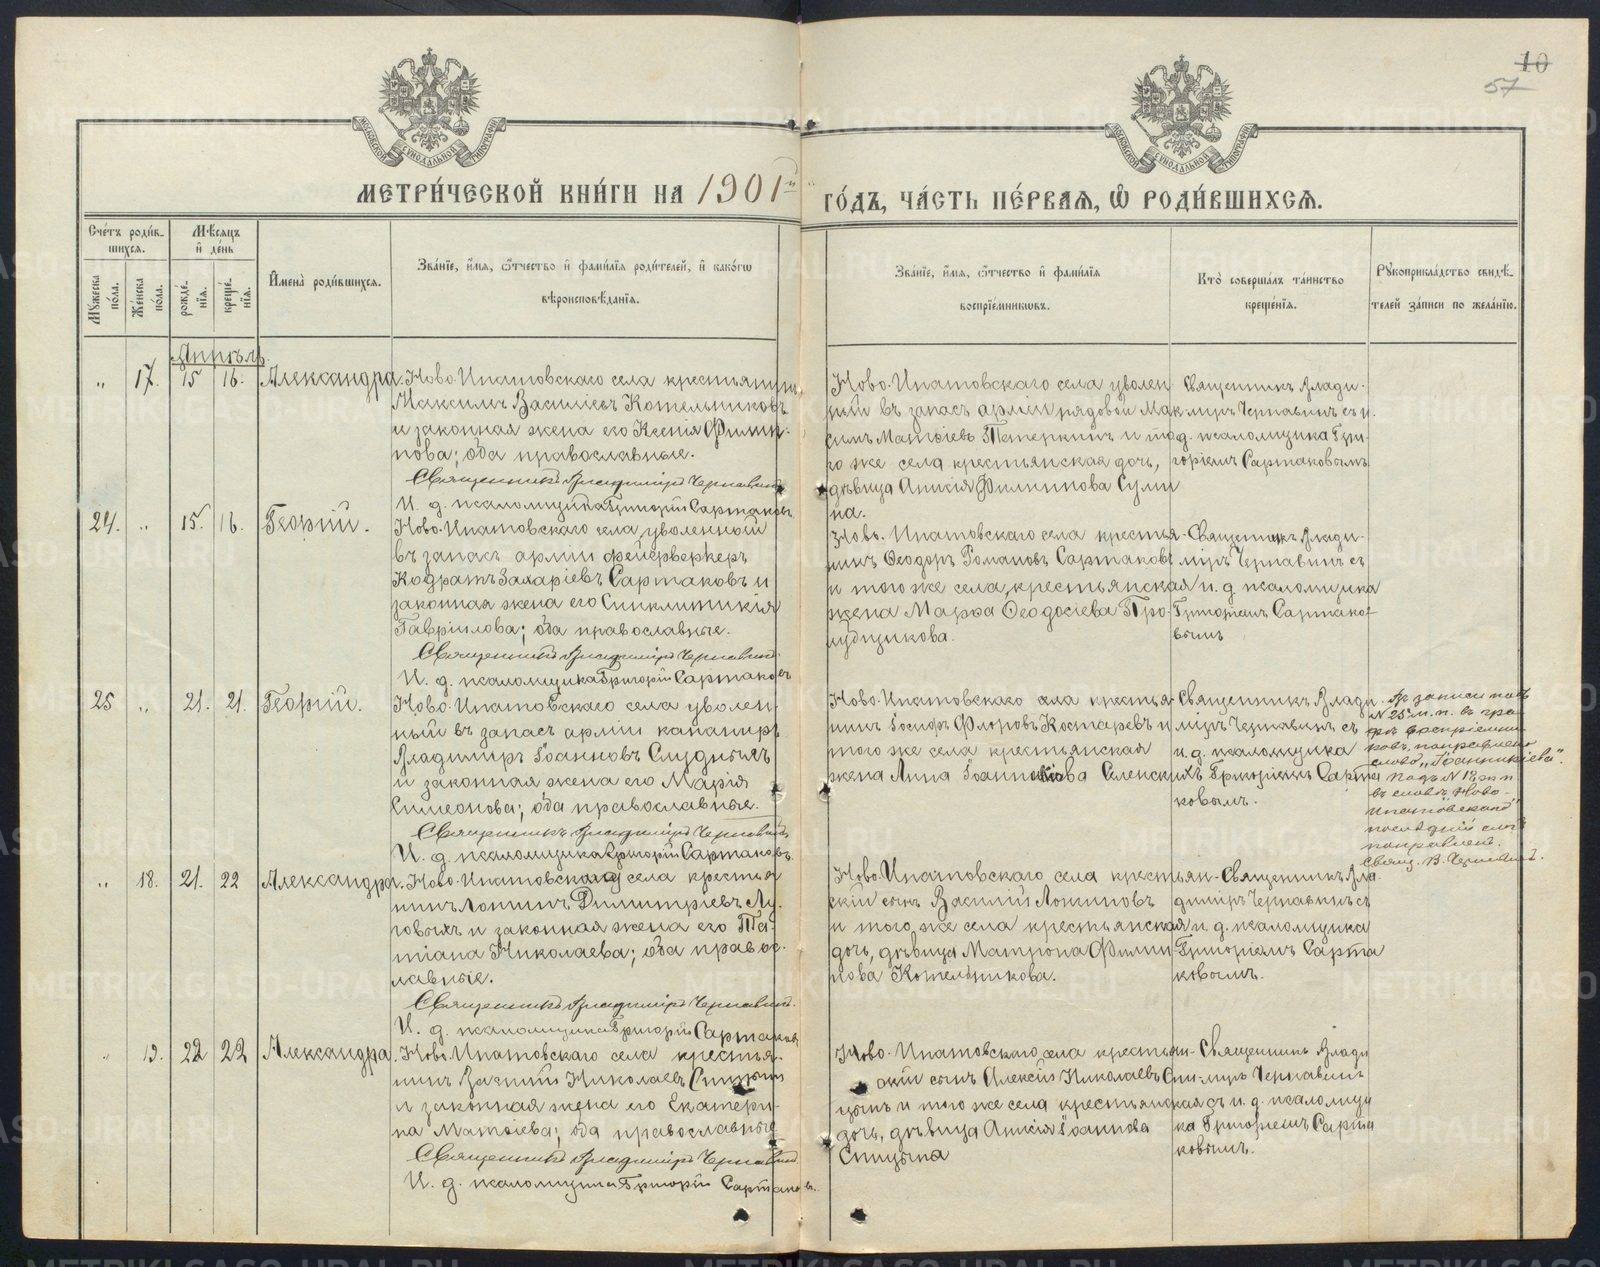 10
57
МОСКОВСКОЙ СѴНОДАЛЬНОЙ ТИПОГРАФІИ
МОСКОВСКОЙ СѴНОДАЛЬНОЙ ТИПОГРАФІИ
МЕТРИ́ЧЕСКОЙ КНИ́ГИ НА 1901й
ГО́ДЪ, ЧА́СТЬ ПЕ́РВАЯ, Ѡ РОДИ́ВШИХСЯ.
Сче́тъ роди́в-
шихся.
Мѣ́сяцъ
и де́нь
Му́жеска по́ла.
Же́нска по́ла.
рожде́-
нїя.
креще́-
нїя.
Имена̀ роди́вшихся.
Зва́нїе, и́мя, ѻ́тчество и фами́лїя роди́телей, и како́гѡ
вѣроисповѣ́данїя.
Зва́нїе, и́мя, ѻ́тчество и фами́лїя
воспрїе́мникѡвъ.
Кто̀ соверша́лъ та́инство
креще́нїя.
Рꙋкоприкла́дство свидѣ́-
телей за́писи по жела́нїю.
Апрѣль.
„ 17. 15 16. Александра.
Ново-Ипатовскаго села крестьянинъ
Максимъ Василіевъ Котельниковъ
и законная жена его Ксенія Филип-
пова; оба православные.
Священникъ Владиміръ Чернавинъ
И. д. псаломщика Григорій Сартаковъ
Ново-Ипатовскаго села уволен
ный въ запасъ арміи рядовой Мак
симъ Матѳіевъ Петеркинъ и то
го же села крестьянская дочь,
дѣвица Анисія Филиппова Сули
на.
Священникъ Влади-
міръ Чернавинъ съ и.
д. псаломщика Гри-
горіемъ Сартаковымъ
24. „ 15. 16. Георгій.
Ново-Ипатовскаго села уволенный
въ запасъ арміи фейерверкеръ
Кодратъ Захаріевъ Сартаковъ и
законная жена его Синклитикія
Гавріилова; оба православные.
Священникъ Владиміръ Чернавинъ
И. д. псаломщика Григорій Сартаковъ
Ново-Ипатовскаго села крестья-
нинъ Ѳеодоръ Романовъ Сартаковъ
и того же села, крестьянская
жена Марѳа Ѳеодосіева Про-
лубщикова.
Священникъ Влади-
міръ Чернавинъ съ
и. д. псаломщика
Григоріемъ Сартако-
вымъ
25 „ 21. 21. Георгій.
Ново-Ипатовскаго села уволен
ный въ запасъ арміи капаниръ
Владиміръ Іоанновъ Слудныхъ
и законная жена его Марія
Симеонова; оба православные.
Священникъ Владиміръ Чернавинъ
И. д. псаломщика Григорій Сартаковъ.
Ново-Ипатовскаго села крестья-
нинъ Іосифъ Флоровъ Костаревъ и
того же села крестьянская
жена Анна Іоанникіева Селенскихъ
Священникъ Влади
міръ Чернавинъ съ
и. д. псаломщика
Григоріемъ Сарта
ковымъ.
Въ записи подъ
№ 25 м. п. въ гра-
фѣ воспріемни
ковъ, поправлено
слово „Іоанникіева".
подъ № 18 ж. п
въ словѣ Ново-
Ипатовскаго
послѣдній слогъ
поправленъ.
Свящ. В. Чернавинъ.
„ 18. 21. 22 Александра.
Ново-Ипатовскаго села крестья
нинъ Логинъ Димитріевъ Лу-
говыхъ и законная жена его Та-
тіана Николаева; оба правос-
лавные.
Священникъ Владиміръ Чернавинъ.
И. д. псаломщика Григорій Сартаковъ
Ново-Ипатовскаго села крестьян-
скій сынъ Василій Логиновъ
и того же села крестьянская
дочь, дѣвица Матрона Филип
пова Котельникова.
Священникъ Вла-
диміръ Чернавинъ съ
и. д. псаломщика
Григоріемъ Сарта
ковымъ.
„ 19. 22 22 Александра.
Ново-Ипатовскаго села крестья-
нинъ Василій Николаевъ Спицынъ
и законная жена его Екатери-
на Матѳіева; оба православные
Священникъ Владиміръ Чернавинъ
И. д. псаломщика Григорій Сартаковъ.
Ново-Ипатовскаго села крестьян-
скій сынъ Алексій Николаевъ Спи-
цынъ и того же села крестьянская
дочь, дѣвица Анисія Іоаннова
Спицына
Священникъ Влади
міръ Чернавинъ
съ и. д. псаломщи
ка Григоріемъ Сарта
ковымъ.